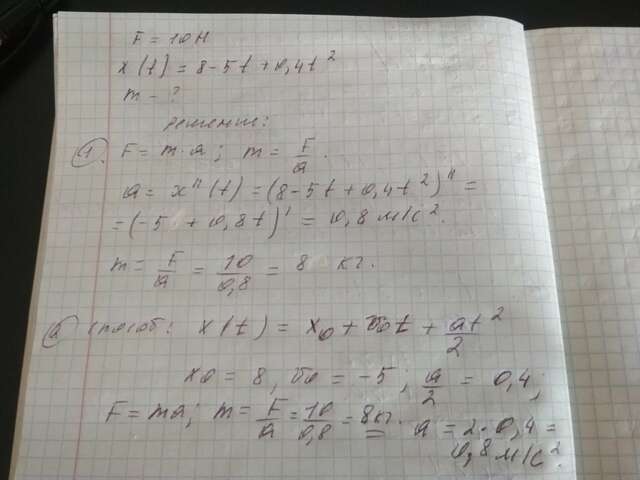 F = 10 Н
x(t) = 8 - 5t + 0,4t²
m - ?
решение:
1. F = m·a; m = F/a.
a = x"(t) = (8 - 5t + 0,4t²)" =
= (-5 + 0,8t)' = 0,8 м/с².
m = F/a = 10/0,8 = 8 кг.
2 способ: x(t) = x₀ + v₀t + at²/2
x₀ = 8, v₀ = -5; a/2 = 0,4;
F = ma; m = F/a = 10/0,8 = 8кг. a = 2·0,4 =
0,8 м/с².